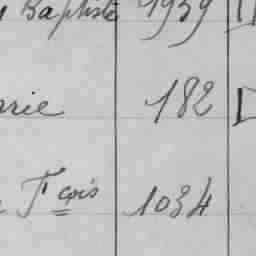 Baptiste 1939
rie 182
Fçois 1034